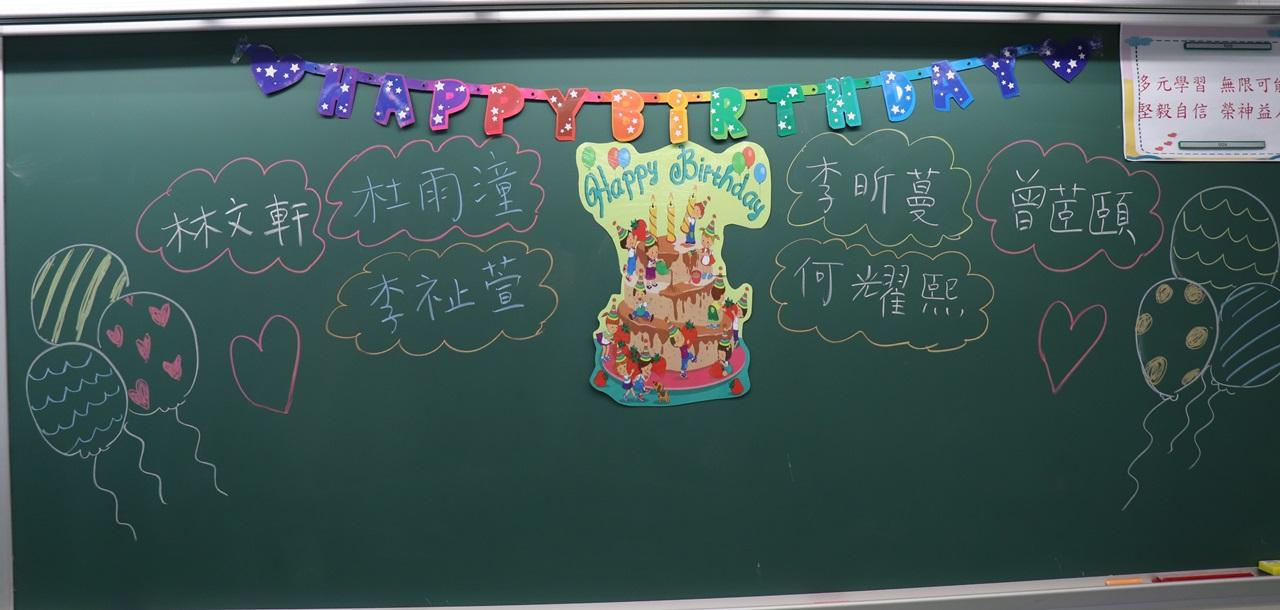 HAPPY BIRTHDAY
多元學習 無限可能
堅毅自信 榮神益人
Happy Birthday
林文軒
杜雨潼
李昕蔓
曾莒頤
李祉萱
何耀熙